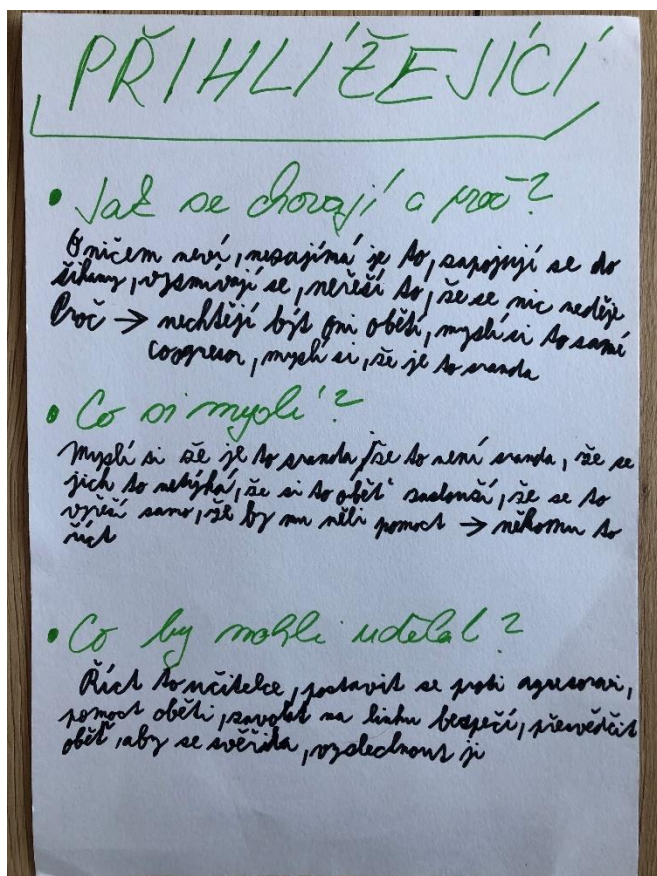 PŘIHLÍŽEJÍCÍ
• Jak se chovají a proč?
O ničem neví, nezajímá je to, zapojují se do
šikany, vysmívají se, neřeší to, že se nic neděje
Proč → nechtějí být oni obětí, myslí si to samé
co agresor, myslí si, že je to sranda
• Co si myslí?
Myslí si že je to sranda / že to není sranda, že se
jich to netýká, že si to oběť zaslouží, že se to
vyřeší samo, že by mu měli pomoct → někomu to
říct
• Co by mohli udělat?
Říct to učitelce, postavit se proti agresorovi,
pomoct oběti, zavolat na linku bezpečí, přesvědčit
oběť, aby se svěřila, vyslechnout ji